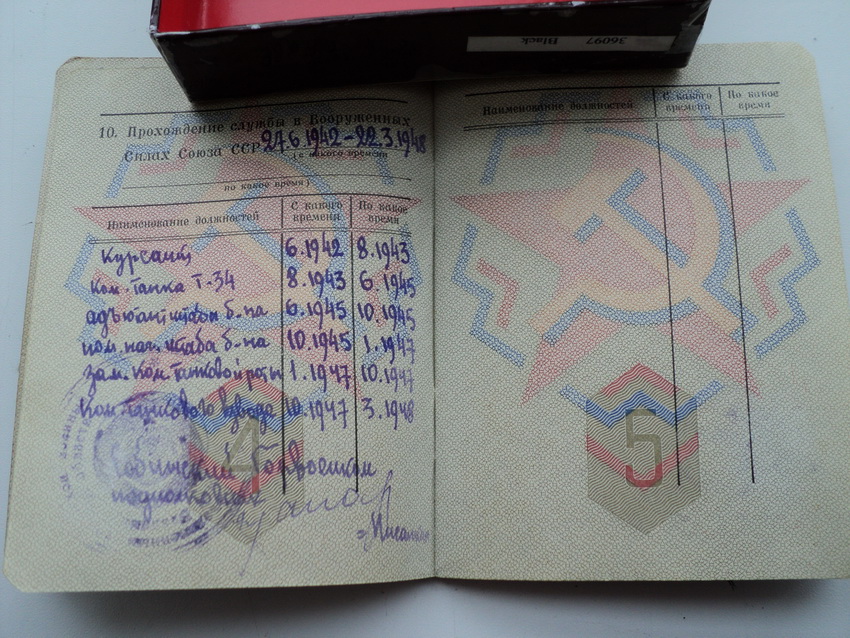 36097 Black
10. Прохождение службы в Вооруженных
Силах Союза ССР 27.6.1942-22.3.1948
(с какого времени
по какое время)
Наименование должностей С какого времени По какое время
курсант 6.1942 8.1943
ком. танка Т-34 8.1943 6.1945
адъютант штаба б-на 6.1945 10.1945
пом. нач. штаба б-на 10.1945 1.1947
зам. ком. танковой роты 1.1947 10.1947
ком. танкового взвода 10.1947 3.1948
Горвоенком
подполковник
4
Наименование должностей С какого времени По какое время
5